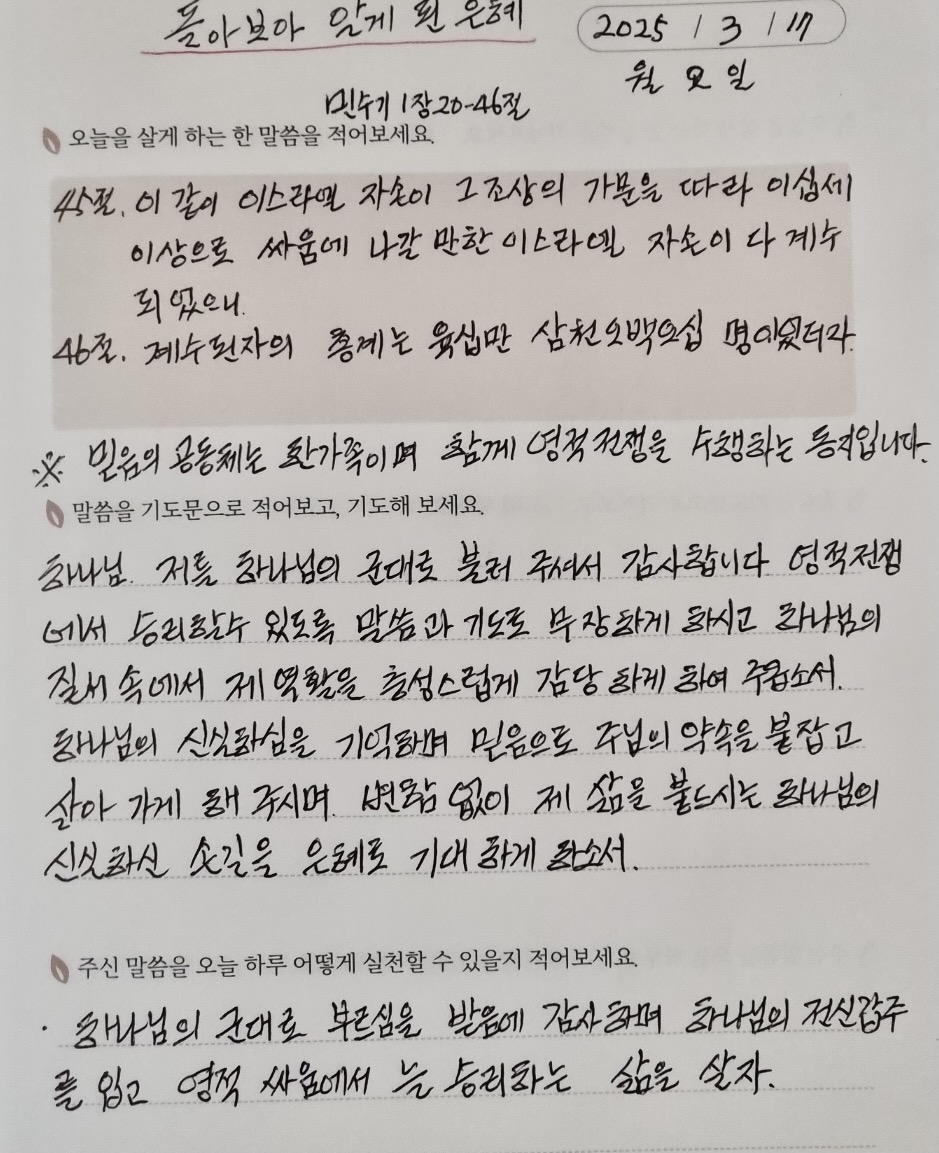 돌아보아 알게 된 은혜
2025 / 3 / 17
월 요 일
민수기 1장 20-46절
오늘을 살게 하는 한 말씀을 적어보세요.
45절. 이 같이 이스라엘 자손이 그 조상의 가문을 따라 이십세
이상으로 싸움에 나갈 만한 이스라엘 자손이 다 계수
되었으니.
46절. 계수된자의 총계는 육십만 삼천오백오십 명이었더라.
※ 믿음의 공동체는 한가족이며 함께 영적전쟁을 수행하는 동지입니다.
말씀을 기도문으로 적어보고, 기도해 보세요.
하나님. 저를 하나님의 군대로 불러 주셔서 감사합니다 영적전쟁
에서 승리할수 있도록 말씀과 기도로 무장하게 하시고 하나님의
질서 속에서 제 역할을 충성스럽게 감당 하게 하여 주옵소서.
하나님의 신실하심을 기억하며 믿음으로 주님의 약속을 붙잡고
살아 가게 해 주시며. 변함 없이 제 삶을 붙드시는 하나님의
신실하신 손길을 은혜로 기대 하게 하소서.
주신 말씀을 오늘 하루 어떻게 실천할 수 있을지 적어보세요.
· 하나님의 군대로 부르심을 받음에 감사하며 하나님의 전신갑주
를 입고 영적 싸움에서 늘 승리하는 삶을 살자.